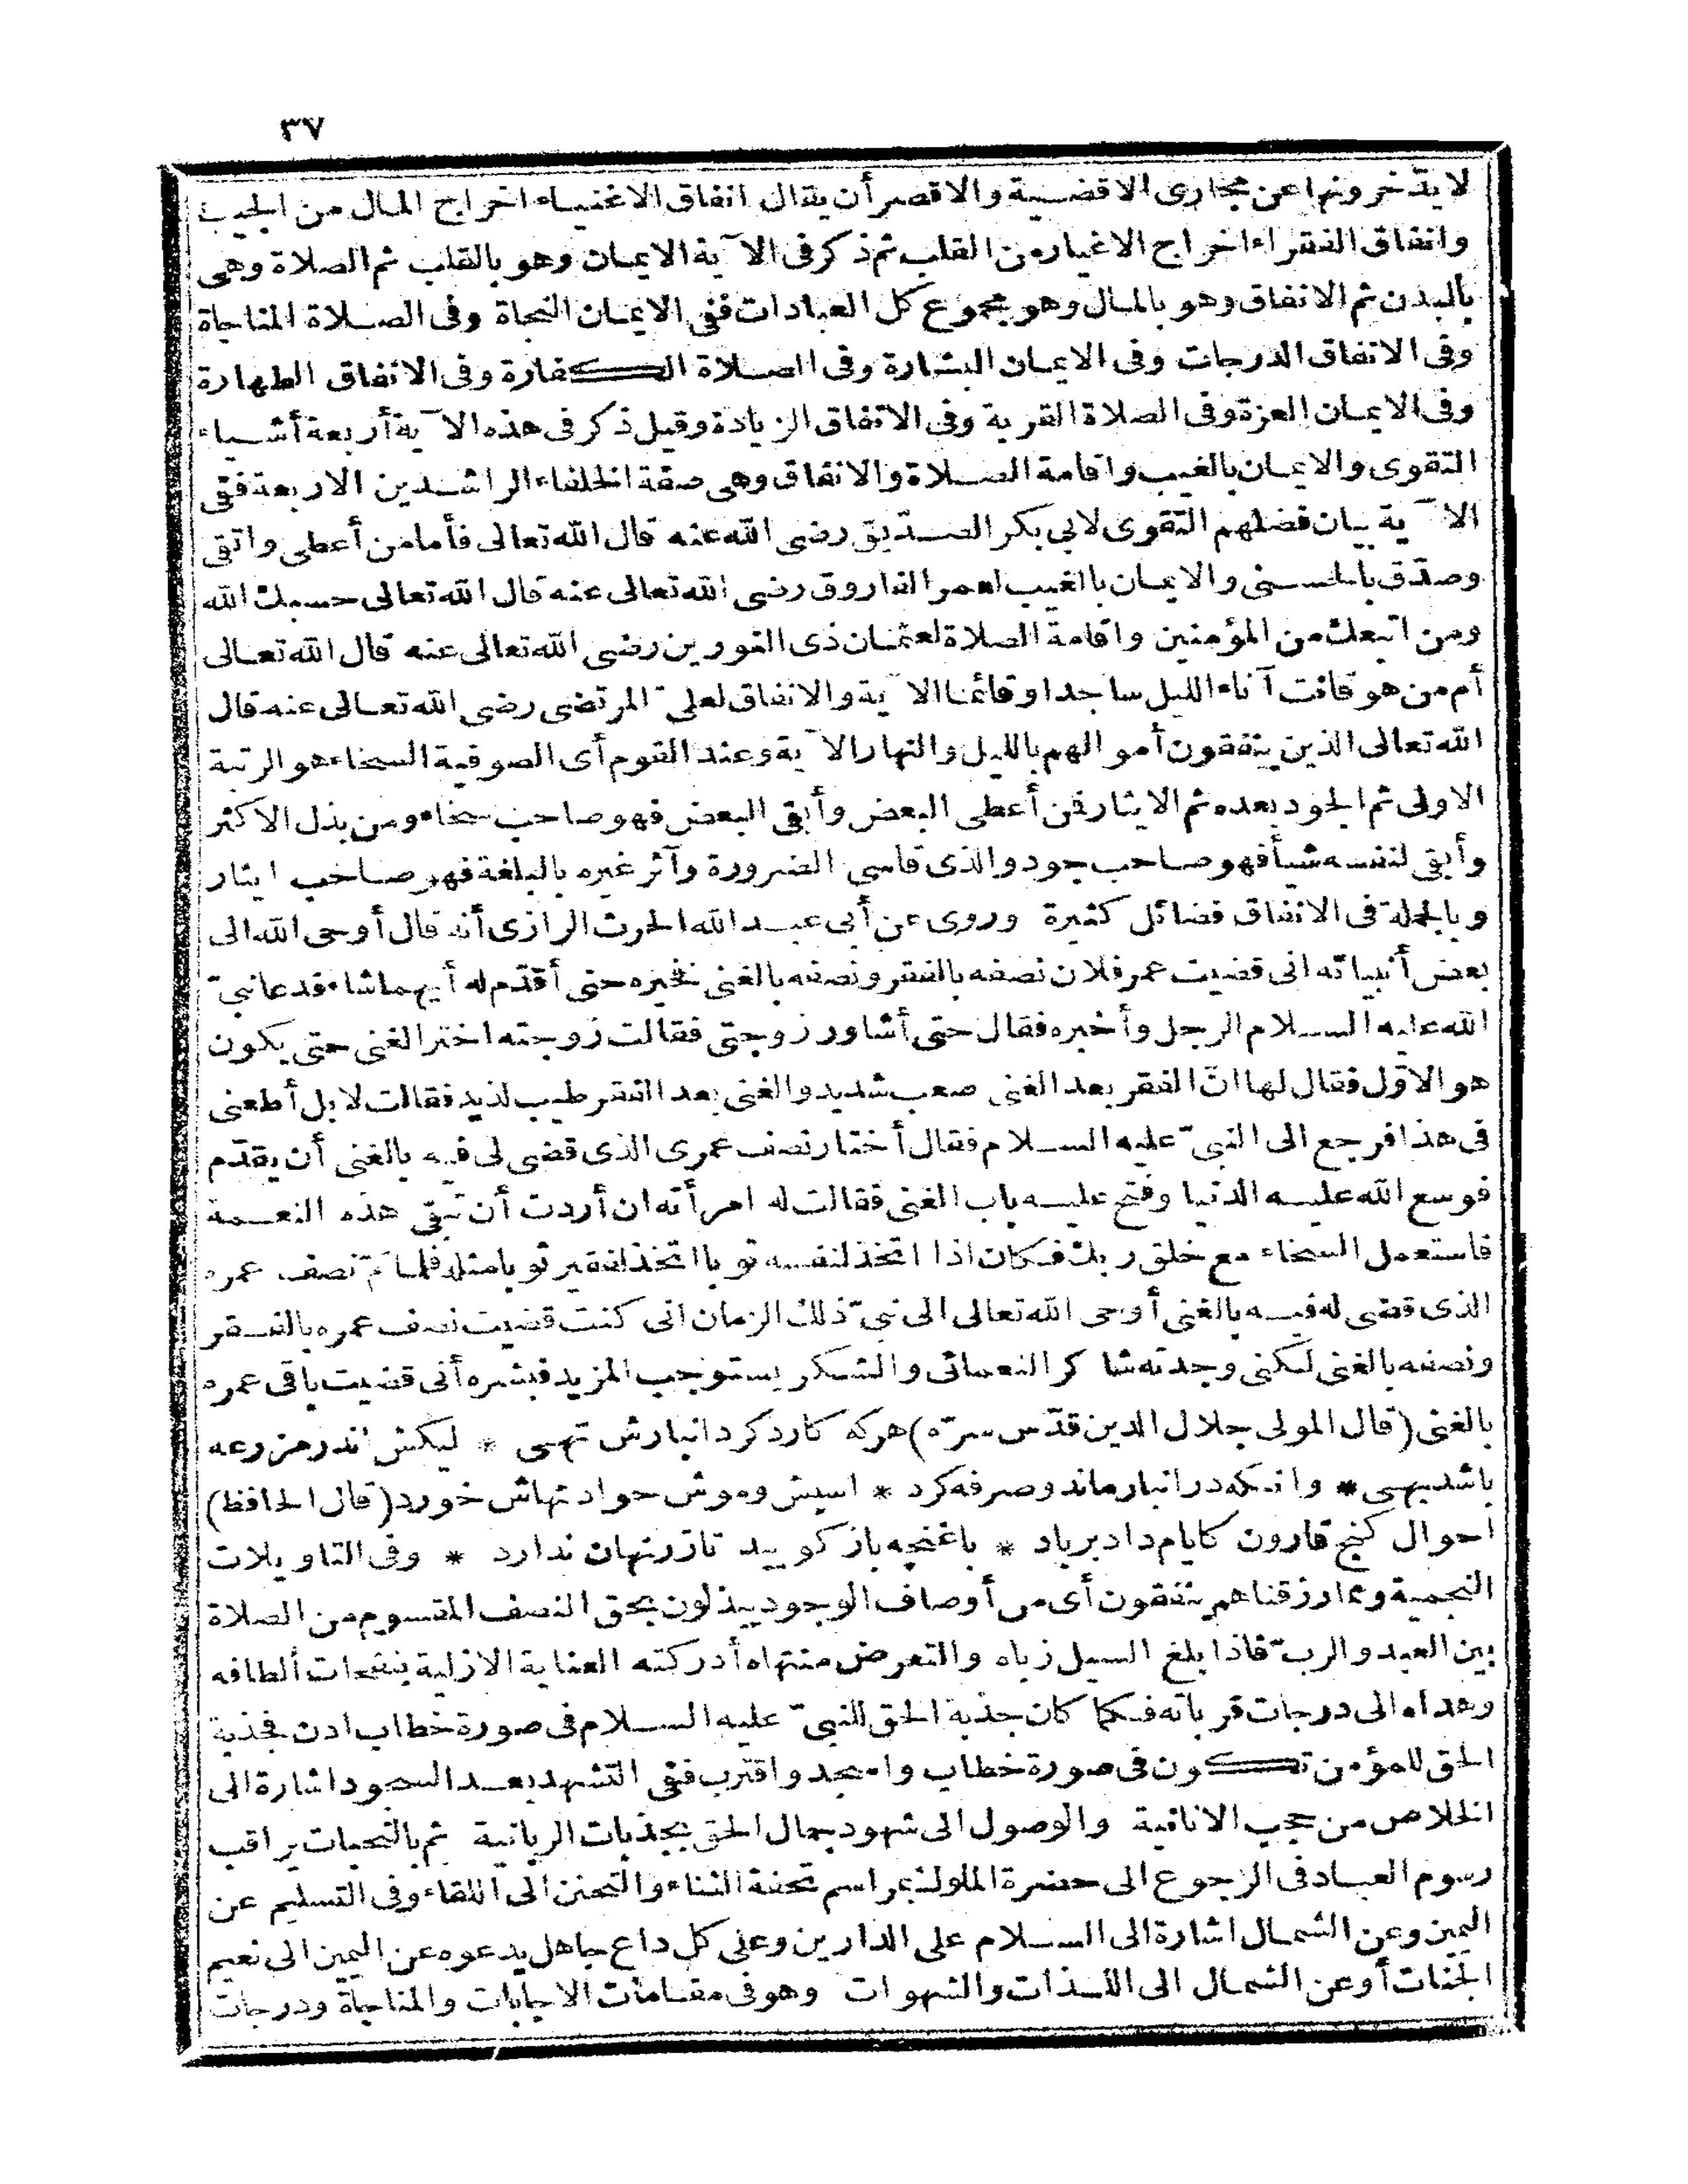 ٣٧
لا يدّخرونها عن مجارى الاقضية والاقصر أن يقال انفاق الاغنياء اخراج المال من الجيب
وانفاق الفقراء اخراج الاغيار من القلب ثم ذكر فى الآية الايمان وهو بالقلب ثم الصلاة وهى
بالبدن ثم الانفاق وهو بالمال وهو مجموع كل العبادات ففى الايمان النجاة وفى الصلاة المناجاة
وفى الانفاق الدرجات وفى الايمان البشارة وفى الصلاة الكفارة وفى الانفاق الطهارة
وفى الايمان العزة وفى الصلاة القربة وفى الانفاق الزيادة وقيل ذكر فى هذه الآية أربعة أشياء
التقوى والايمان بالغيب واقامة الصلاة والانفاق وهى صفة الخلفاء الراشدين الاربعة ففى
الآية بيان فضلهم التقوى لابى بكر الصدّيق رضى الله عنه قال الله تعالى فأما من أعطى واتقى
وصدّق بالحسنى والايمان بالغيب لعمر الفاروق رضى الله تعالى عنه قال الله تعالى حسبك الله
ومن اتبعك من المؤمنين واقامة الصلاة لعثمان ذى النورين رضى الله تعالى عنه قال الله تعالى
أم من هو قانت آناء الليل ساجدا وقائما الآية والانفاق لعلىّ المرتضى رضى الله تعالى عنه قال
الله تعالى الذين ينفقون أموالهم بالليل والنهار الآية وعند القوم أى الصوفية السخاء هو الرتبة
الاولى ثم الجود بعده ثم الايثار فمن أعطى البعض وأبقى البعض فهو صاحب سخاء ومن بذل الاكثر
وأبقى لنفسه شيأ فهو صاحب جود والذى قاسى الضرورة وآثر غيره بالبلغة فهو صاحب ايثار
وبالجملة فى الانفاق فضائل كثيرة وروى عن أبى عبد الله الحرث الرازى أنه قال أوحى الله الى
بعض أنبيائه انى قضيت عمر فلان نصفه بالفقر ونصفه بالغنى فخيره حتى أقدّم له أيهما شاء فدعا نبىّ
الله عليه السلام الرجل وأخبره فقال حتى أشاور زوجتى فقالت زوجته اختر الغنى حتى يكون
هو الاوّل فقال لها انّ الفقر بعد الغنى صعب شديد والغنى بعد الفقر طيب لذيذ فقالت لا بل أطعنى
فى هذا فرجع الى النبىّ عليه السلام فقال أختار نصف عمرى الذى قضى لى فيه بالغنى أن يقدّم
فوسع الله عليه الدنيا وفتح عليه باب الغنى فقالت له امرأته ان أردت أن تبقى هذه النعمة
فاستعمل السخاء مع خلق ربك فكان اذا اتخذ لنفسه ثوبا اتخذ لفقير ثوبا مثله فلما تمّ نصف عمره
الذى قضى له فيه بالغنى أوحى الله تعالى الى نبىّ ذلك الزمان انى كنت قضيت نصف عمره بالفقر
ونصفه بالغنى لكنى وجدته شاكرا لنعمائى والشكر يستوجب المزيد فبشره أنى قضيت باقى عمره
بالغنى (قال المولى جلال الدين قدّس سرّه) هركه كارد كردد انبارش تهى * ليكش اندر مزرعه
باشد بهى * وانكه در انبار ماند وصرفه كرد * اسپش وموش حوادثهاش خورد (قال الحافظ)
احوال كنج قارون كايام داد برباد * باغنچه باز كوييد تا زر نهان ندارد * وفى التاويلات
النجمية ومما رزقناهم ينفقون أى من أوصاف الوجود يبذلون بحق النصف المقسوم من الصلاة
بين العبد والربّ فاذا بلغ السيل زباه والتعرض منتهاه أدركته العناية الازلية بنفحات ألطافه
وهداه الى درجات قرباته فكما كان جذبة الحق للنبىّ عليه السلام فى صورة خطاب ادن فجذبة
الحق للمؤمن تكون فى صورة خطاب واسجد واقترب ففى التشهد بعد السجود اشارة الى
الخلاص من حجب الانانية والوصول الى شهود جمال الحق بجذبات الربانية ثم بالتحيات يراقب
رسوم العباد فى الرجوع الى حضرة الملوك بمراسم تحفة الثناء والتحنن الى اللقاء وفى التسليم عن
اليمين وعن الشمال اشارة الى السلام على الدارين وعلى كل داع جاهل يدعوه عن اليمين الى نعيم
الجنات أو عن الشمال الى اللذات والشهوات وهو فى مقامات الاجابات والمناجاة ودرجات